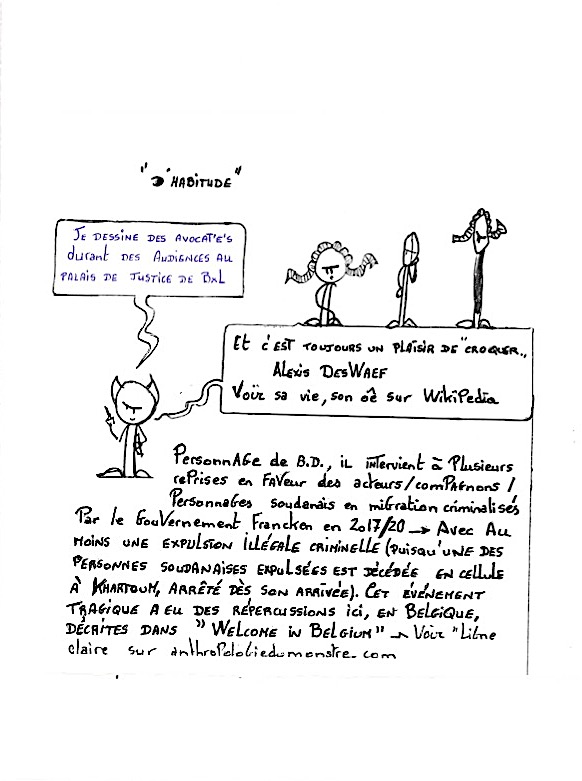 "D'HABITUDE"
JE DESSINE DES AVOCAT'E'S
durant DES AUDIENCES AU
PALAIS DE JUSTICE DE BXL
Et c'EST TOUJOURS UN PLAISIR DE "CROQUER"
ALEXIS DESWAEF
Voir sa vie, son sur WIKIPEDIA
PERSONNAGE de B.D., iL intervient à Plusieurs
rePrises en FAVEUR des acteurs/comPAgnons/
Personnages soudanais en migration criminalisés
Par le GouVernement Francken en 2017/20 → AVEC AU
MOINS UNE EXPULSION ILLÉGALE CRIMINELLE (PUISQU'UNE DES
PERSONNES SOUDANAISES EXPULSÉES EST DÉCÉDÉE EN CELLULE
À KHARTOUM, ARRÊTÉ DÈS SON ARRIVÉE). CET ÉVÉNEMENT
TRAGIQUE A EU DES RÉPERCUSSIONS ICI, EN BELGIQUE,
DÉCRITES DANS "WELCOME IN BELGIUM" → Voir "Ligne
claire sur anthropologiedumonstre.com